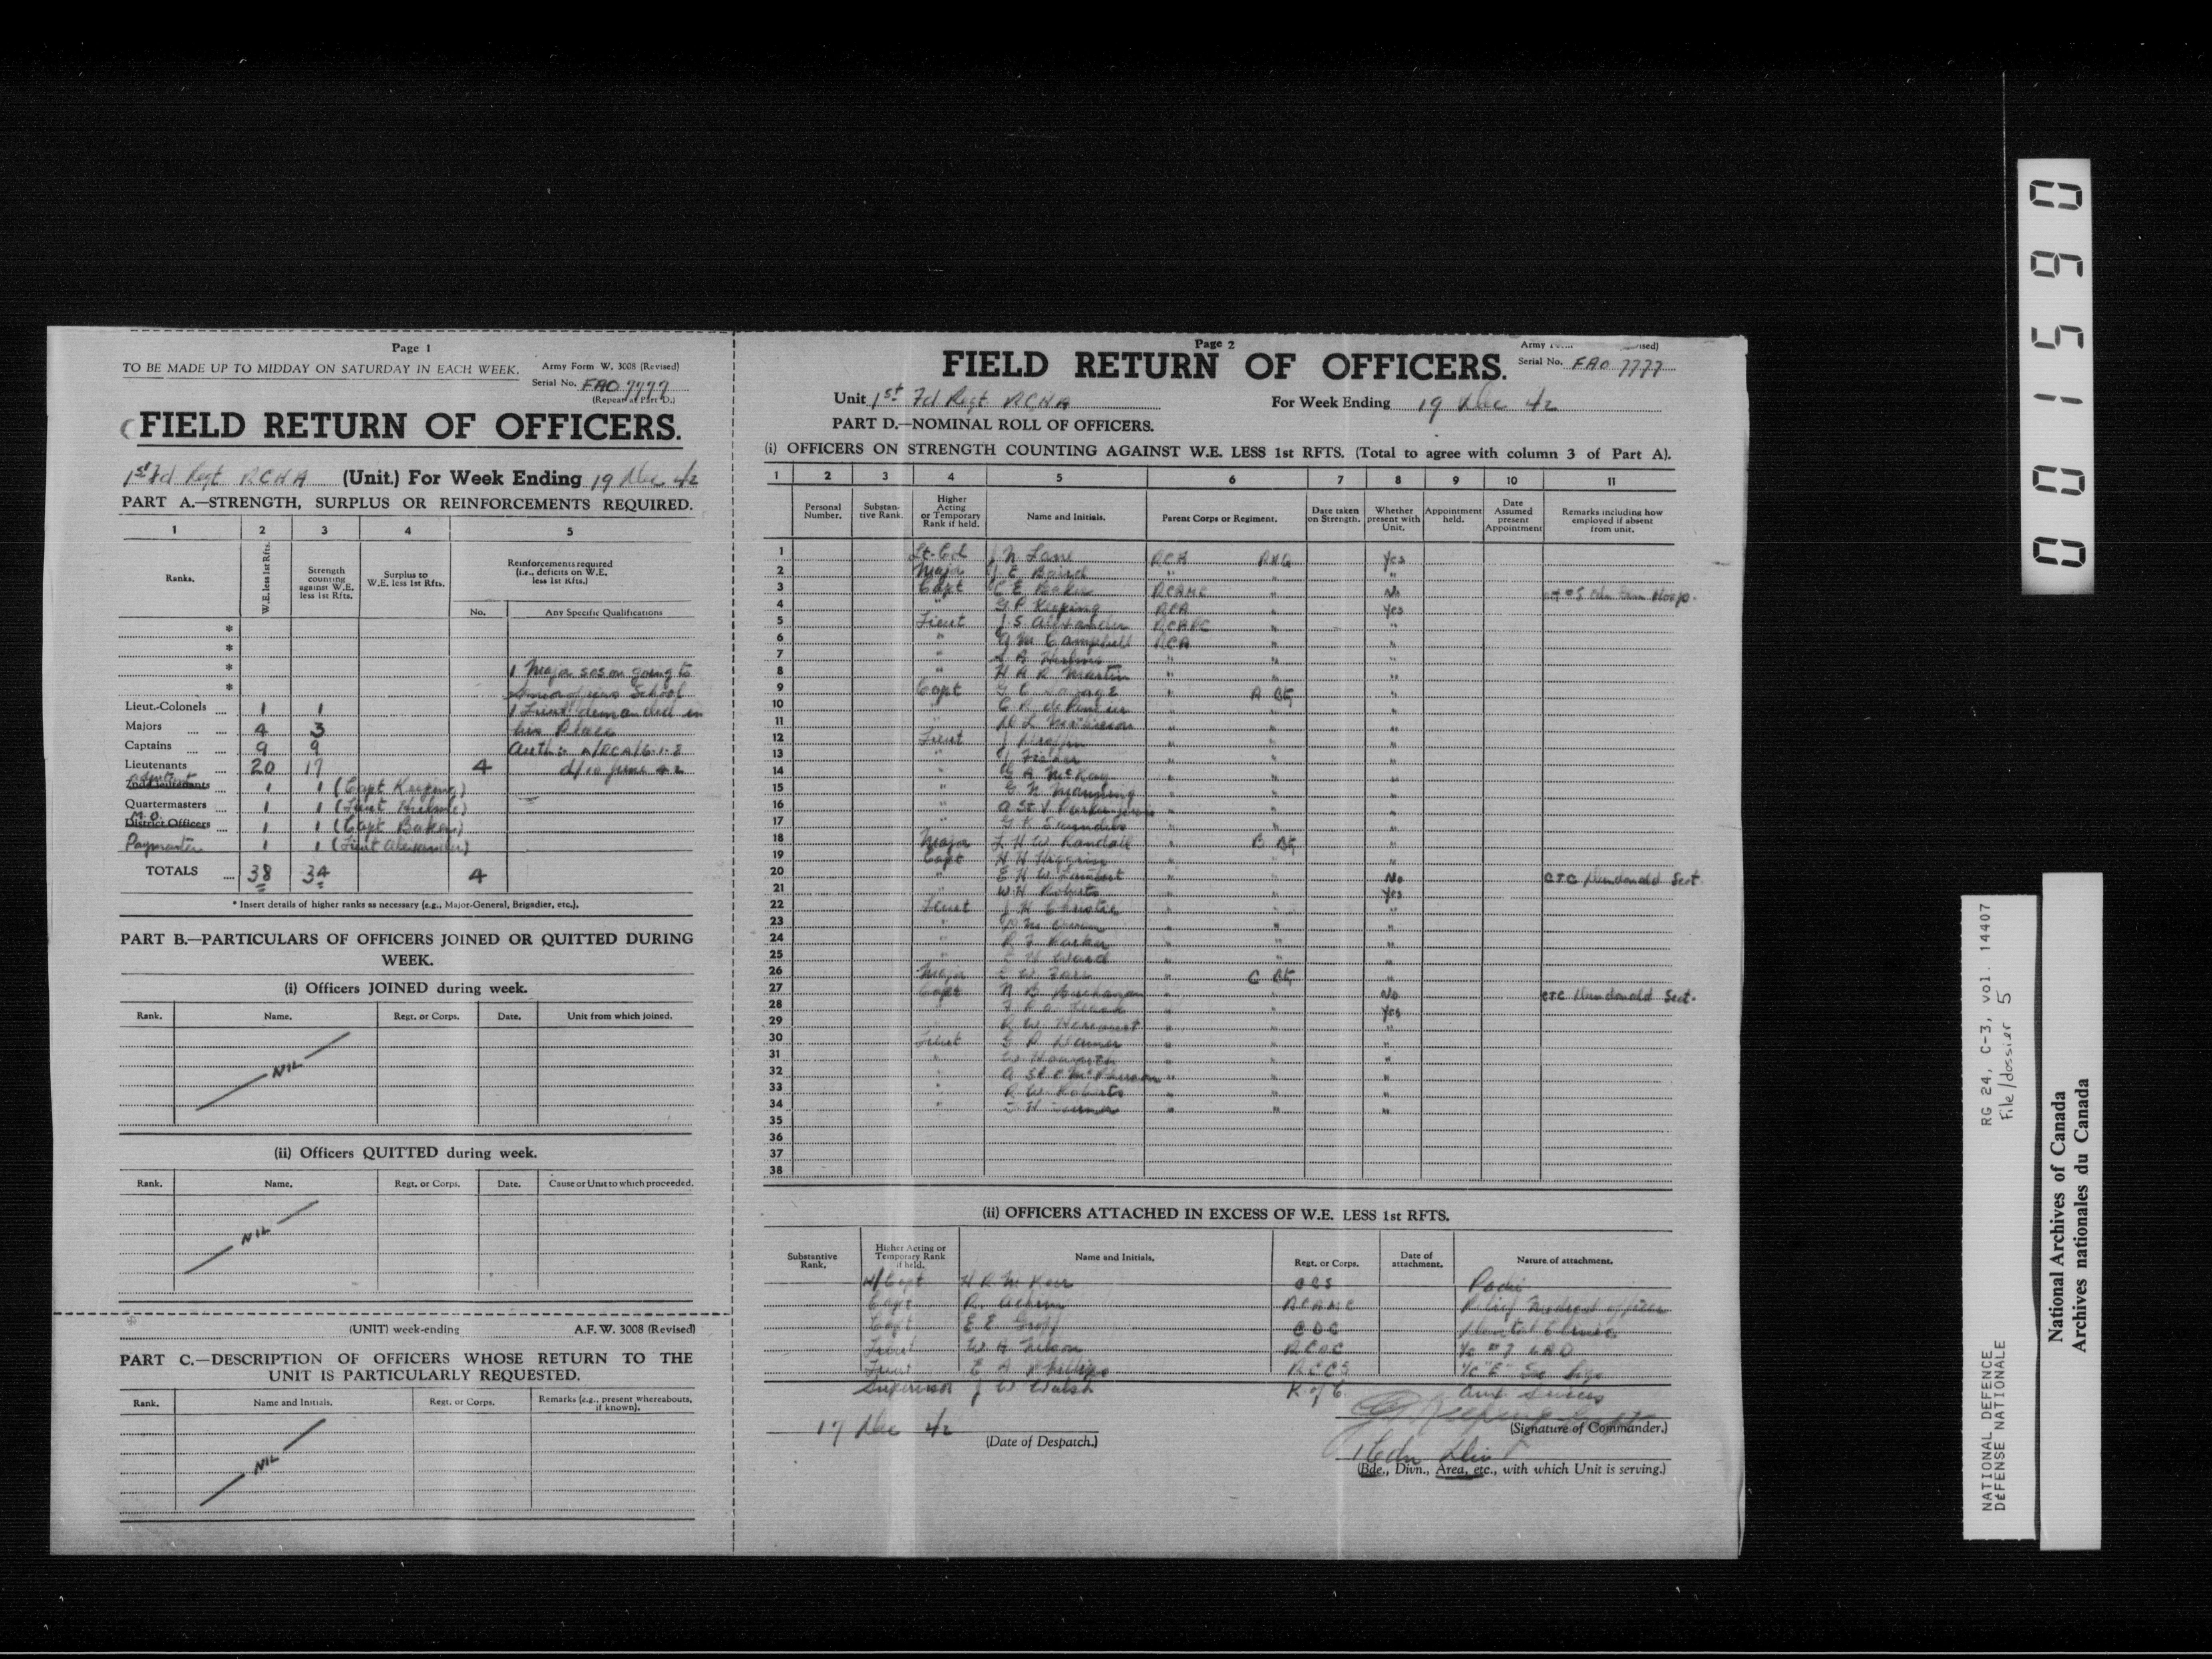 Page 1
TO BE MADE UP TO MIDDAY ON SATURDAY IN EACH WEEK.
Army Form W. 3008 (Revised)
Serial No. FAO 7777
(Repeat at Part D.)
FIELD RETURN OF OFFICERS.
1st Fd Regt RCHA (Unit.) For Week Ending 19 Dec 42
PART A.—STRENGTH, SURPLUS OR REINFORCEMENTS REQUIRED.
1 2 3 4 5
Ranks. W.E. less 1st Rfts. Strength counting against W.E. less 1st Rfts. Surplus to W.E. less 1st Rfts. Reinforcements required (i.e., deficits on W.E. less 1st Rfts.)
No. Any Specific Qualifications
*
*
* 1 Major sos on going to
* School
Lieut.-Colonels 1 1 1 Lieut demanded in
Majors 4 3 his Place
Captains 9 9 Auth:- A/RCA/6-1-8
Lieutenants 20 17 4 d/10 June 42
Adjutant 2nd Lieutenants 1 1 (Capt Keeping)
Quartermasters 1 1 (Lieut Hulme)
M.O. District Officers 1 1 (Capt Baker)
Paymaster 1 1 (Lieut Alexander)
TOTALS 38 34 4
* Insert details of higher ranks as necessary (e.g., Major-General, Brigadier, etc.).
PART B.—PARTICULARS OF OFFICERS JOINED OR QUITTED DURING
WEEK.
(i) Officers JOINED during week.
Rank. Name. Regt. or Corps. Date. Unit from which joined.
NIL
(ii) Officers QUITTED during week.
Rank. Name. Regt. or Corps. Date. Cause or Unit to which proceeded.
NIL
(UNIT) week-ending A.F.W. 3008 (Revised)
PART C.—DESCRIPTION OF OFFICERS WHOSE RETURN TO THE
UNIT IS PARTICULARLY REQUESTED.
Rank. Name and Initials. Regt. or Corps. Remarks (e.g., present whereabouts, if known).
NIL
Page 2
Army
Serial No. FAO 7777
FIELD RETURN OF OFFICERS.
Unit 1st Fd Regt RCHA For Week Ending 19 Dec 42
PART D.—NOMINAL ROLL OF OFFICERS.
(i) OFFICERS ON STRENGTH COUNTING AGAINST W.E. LESS 1st RFTS. (Total to agree with column 3 of Part A).
1 2 3 4 5 6 7 8 9 10 11
Personal Number. Substantive Rank. Higher Acting or Temporary Rank if held. Name and Initials. Parent Corps or Regiment. Date taken on Strength. Whether present with Unit. Appointment held. Date Assumed present Appointment Remarks including how employed if absent from unit.
1 Lt-Col J N Lane RCA RHQ Yes
2 Major J E Baird " " "
3 Capt C E Baker RCAMC " No
4 " G P Keeping RCA " Yes
5 Lieut J S Alexander RCAPC " "
6 " G M Campbell RCA " "
7 " Hulme " " "
8 " H A R Martin " " "
9 Capt G E Savage " A Bt "
10 " " " "
11 " D L Mathieson " " "
12 Lieut J " " "
13 " J Fisher " " "
14 " G A McKay " " "
15 " G N Manning " " "
16 " A St V " " "
17 " G K Saunders " " "
18 Major L H W Randall " B Bt "
19 Capt H H Higgins " " "
20 " E H W Lambert " " No CTC Dundonald Scot.
21 " W H Roberts " " Yes
22 Lieut J H Christie " " "
23 " " " "
24 " R F Parker " " "
25 " Ward " " "
26 Major " C Bt "
27 Capt N B Buchanan " " No CTC Dundonald Scot.
28 " " " Yes
29 " R W " " "
30 Lieut G R " " "
31 " W " " "
32 " A St C McPherson " " "
33 " R W Roberts " " "
34 " " " "
35
36
37
38
(ii) OFFICERS ATTACHED IN EXCESS OF W.E. LESS 1st RFTS.
Substantive Rank. Higher Acting or Temporary Rank if held. Name and Initials. Regt. or Corps. Date of attachment. Nature of attachment.
H/Capt H R M Kerr CCS Padre
Capt R. RCAMC Relief Medical officer
Capt E E Groff CDC Dental Clinic
Lieut W A Nelson RCOC
Lieut E A Phillips RCCS
Supervisor J W Walsh K of C. Aux Services
17 Dec 42
(Date of Despatch.)
G P Keeping Capt
(Signature of Commander.)
1 Cdn Div
(Bde., Divn., Area, etc., with which Unit is serving.)
001590
NATIONAL DEFENCE RG 24, C-3, vol. 14407
DÉFENSE NATIONALE File/dossier 5
National Archives of Canada
Archives nationales du Canada